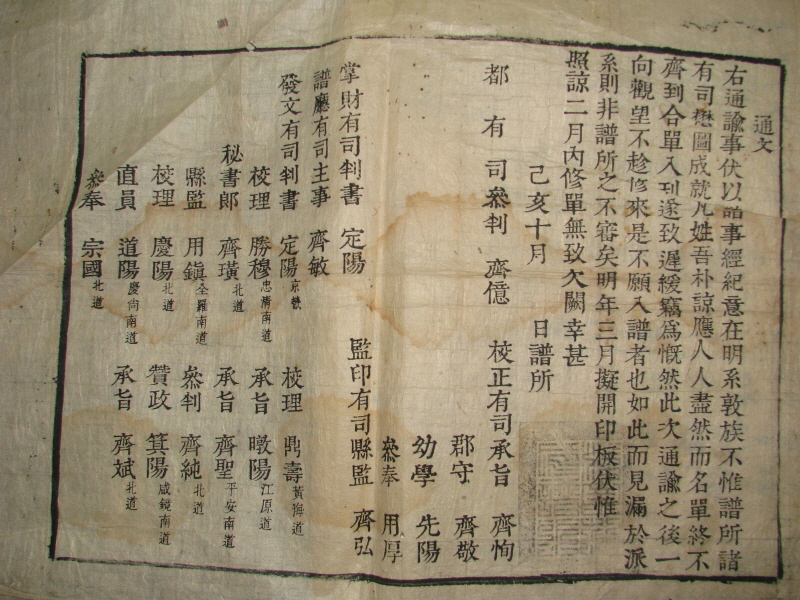 通文
右通諭事伏以譜事經紀意在明系敦族不惟譜所諸
有司懋圖成就凡姓吾朴諒應人人盡然而名單終不
齊到合單入刊遂致遲緩竊爲慨然此次通諭之後一
向觀望不趁修來是不願入譜者也如此而見漏於派
系則非譜所之不審矣明年三月擬開印板伏惟
照諒二月內修單無致欠闕幸甚
己亥十月 日譜所
都有司叅判 齊億 校正有司承旨 齊恂
郡守 齊敬
幼學 先陽
叅奉 用厚
掌財有司判書 定陽 監印有司縣監 齊弘
譜廳有司主事 齊敏
發文有司判書 定陽 京畿 校理 鼎壽 黃海道
校理 勝穆 忠淸南道 承旨 暾陽 江原道
秘書郎 齊璜 北道 承旨 齊聖 平安南道
縣監 用鎭 全羅南道 叅判 齊純 北道
校理 慶陽 北道 贊政 箕陽 咸鏡南道
直員 道陽 慶尙南道 承旨 齊斌 北道
叅奉 宗國 北道